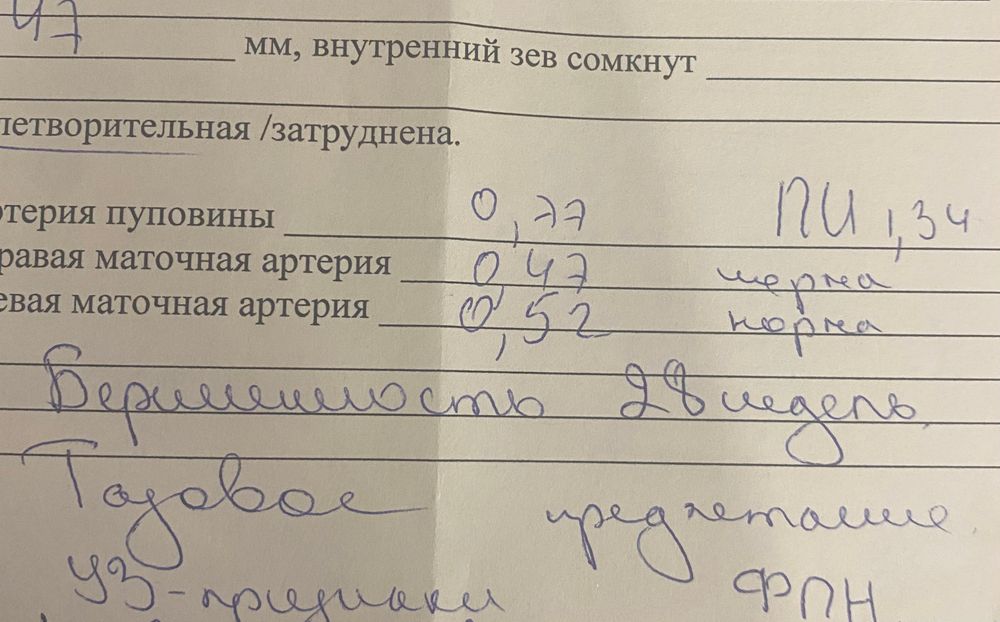 47 мм, внутренний зев сомкнут
летворительная /затруднена.
ртерия пуповины 0,77 ПИ 1,34
равая маточная артерия 0,47 норма
евая маточная артерия 0,52 норма
Беременность 28 недель.
Тазовое предлежание.
УЗ-признаки ФПН